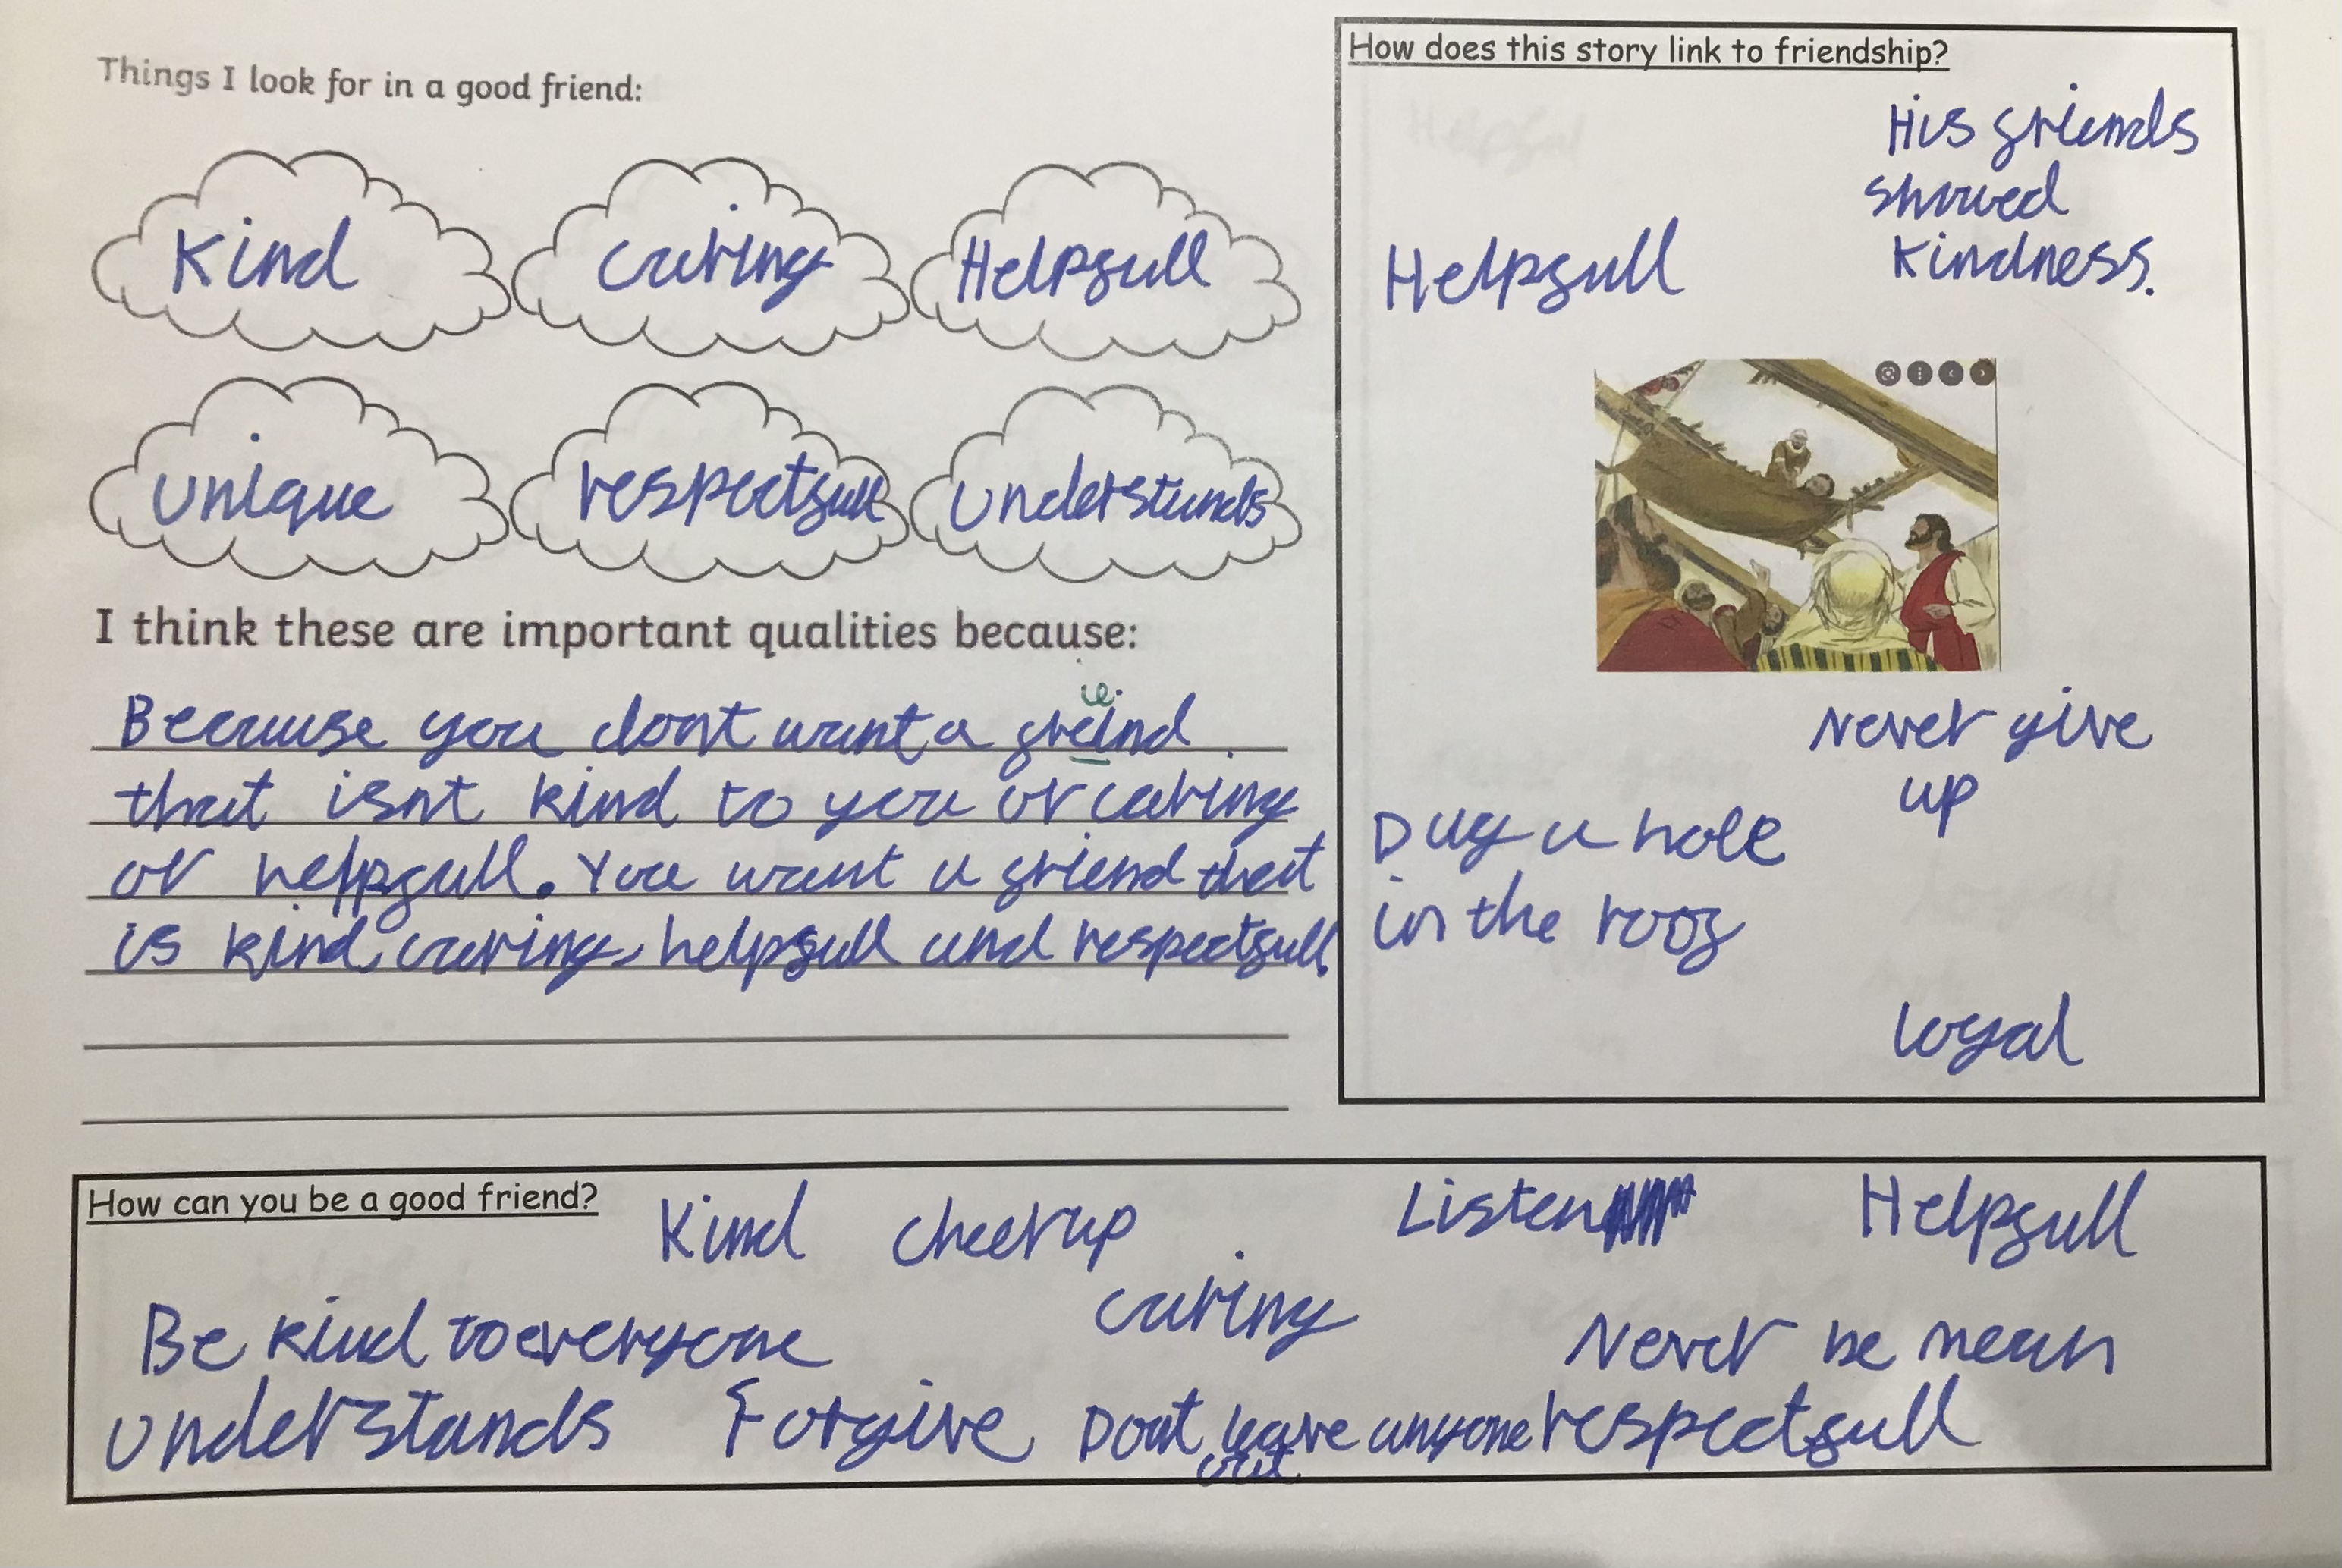 Things I look for in a good friend:
Kind
caring
Helpfull
unique
respectfull
understands
I think these are important qualities because:
ie
Because you dont want a freind
that isnt kind to you or caring
or helpfull. You want a friend that
is kind, caring, helpfull and respectfull
How does this story link to friendship?
His friends
showed
kindness.
Helpfull
Never give
up
Dug a hole
in the roof
loyal
How can you be a good friend?
Kind cheer up Listen Helpfull
caring
Be kind to everyone Never be mean
understands Forgive Dont leave anyone respectfull
out